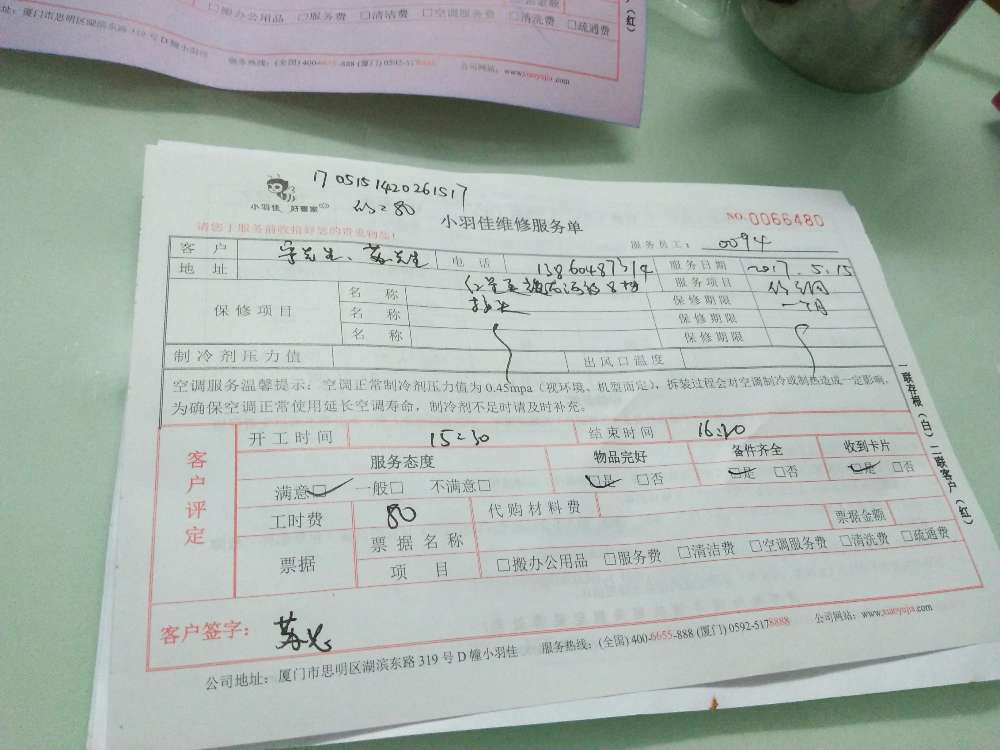 搬办公用品 服务费 清洁费 空调服务费 清洗费 疏通费
(红)
地址:厦门市思明区湖滨东路319号D幢小羽佳
服务热线:(全国)400-6655-888 (厦门)0592-5178888 公司网站:www.xiaoyujia.com
17 0515 1420261517
小羽佳 好管家
小羽佳维修服务单
NO.0066480
请您于服务前收拾好您的贵重物品!
服务员工: 0094
客户 电话 服务日期 2017.5.15
地址 服务项目
保修项目 名称 保修期限 一个月
名称 保修期限
名称 保修期限
制冷剂压力值 出风口温度
空调服务温馨提示:空调正常制冷剂压力值为0.45mpa(视环境、机型而定),拆装过程会对空调制冷或制热造成一定影响,
为确保空调正常使用延长空调寿命,制冷剂不足时请及时补充。
客户评定
开工时间 15:30 结束时间
服务态度 物品完好 备件齐全 收到卡片
满意□ 一般□ 不满意□ □是 □否 □是 □否 □是 □否
工时费 80 代购材料费
票据 票据名称 票据金额
项目 □搬办公用品 □服务费 □清洁费 □空调服务费 □清洗费 □疏通费
客户签字:
公司地址:厦门市思明区湖滨东路319号D幢小羽佳 服务热线:(全国)400-6655-888 (厦门)0592-5178888 公司网站:www.xiaoyujia.com
一联存根(白)二联客户(红)